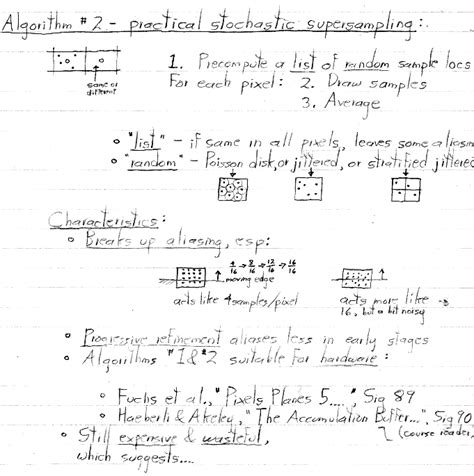 Algorithm #2 - practical stochastic supersampling:
same or
different
1. Precompute a list of random sample locs
For each pixel: 2. Draw samples
3. Average
• "list" - if same in all pixels, leaves some aliasin
• "random" - Poisson disk, or jittered, or stratified jittered
Characteristics:
• Breaks up aliasing, esp:
4/16 → 8/16 → 12/16 → 16/16
moving edge
acts like 4 samples/pixel
acts more like
16, but a bit noisy
• Progressive refinement aliases less in early stages
• Algorithms #1 & #2 suitable for hardware:
• Fuchs et al., "Pixels Planes 5....", Sig 89
• Haeberli & Akeley, "The Accumulation Buffer...", Sig 90
(course reader)
• Still expensive & wasteful,
which suggests....